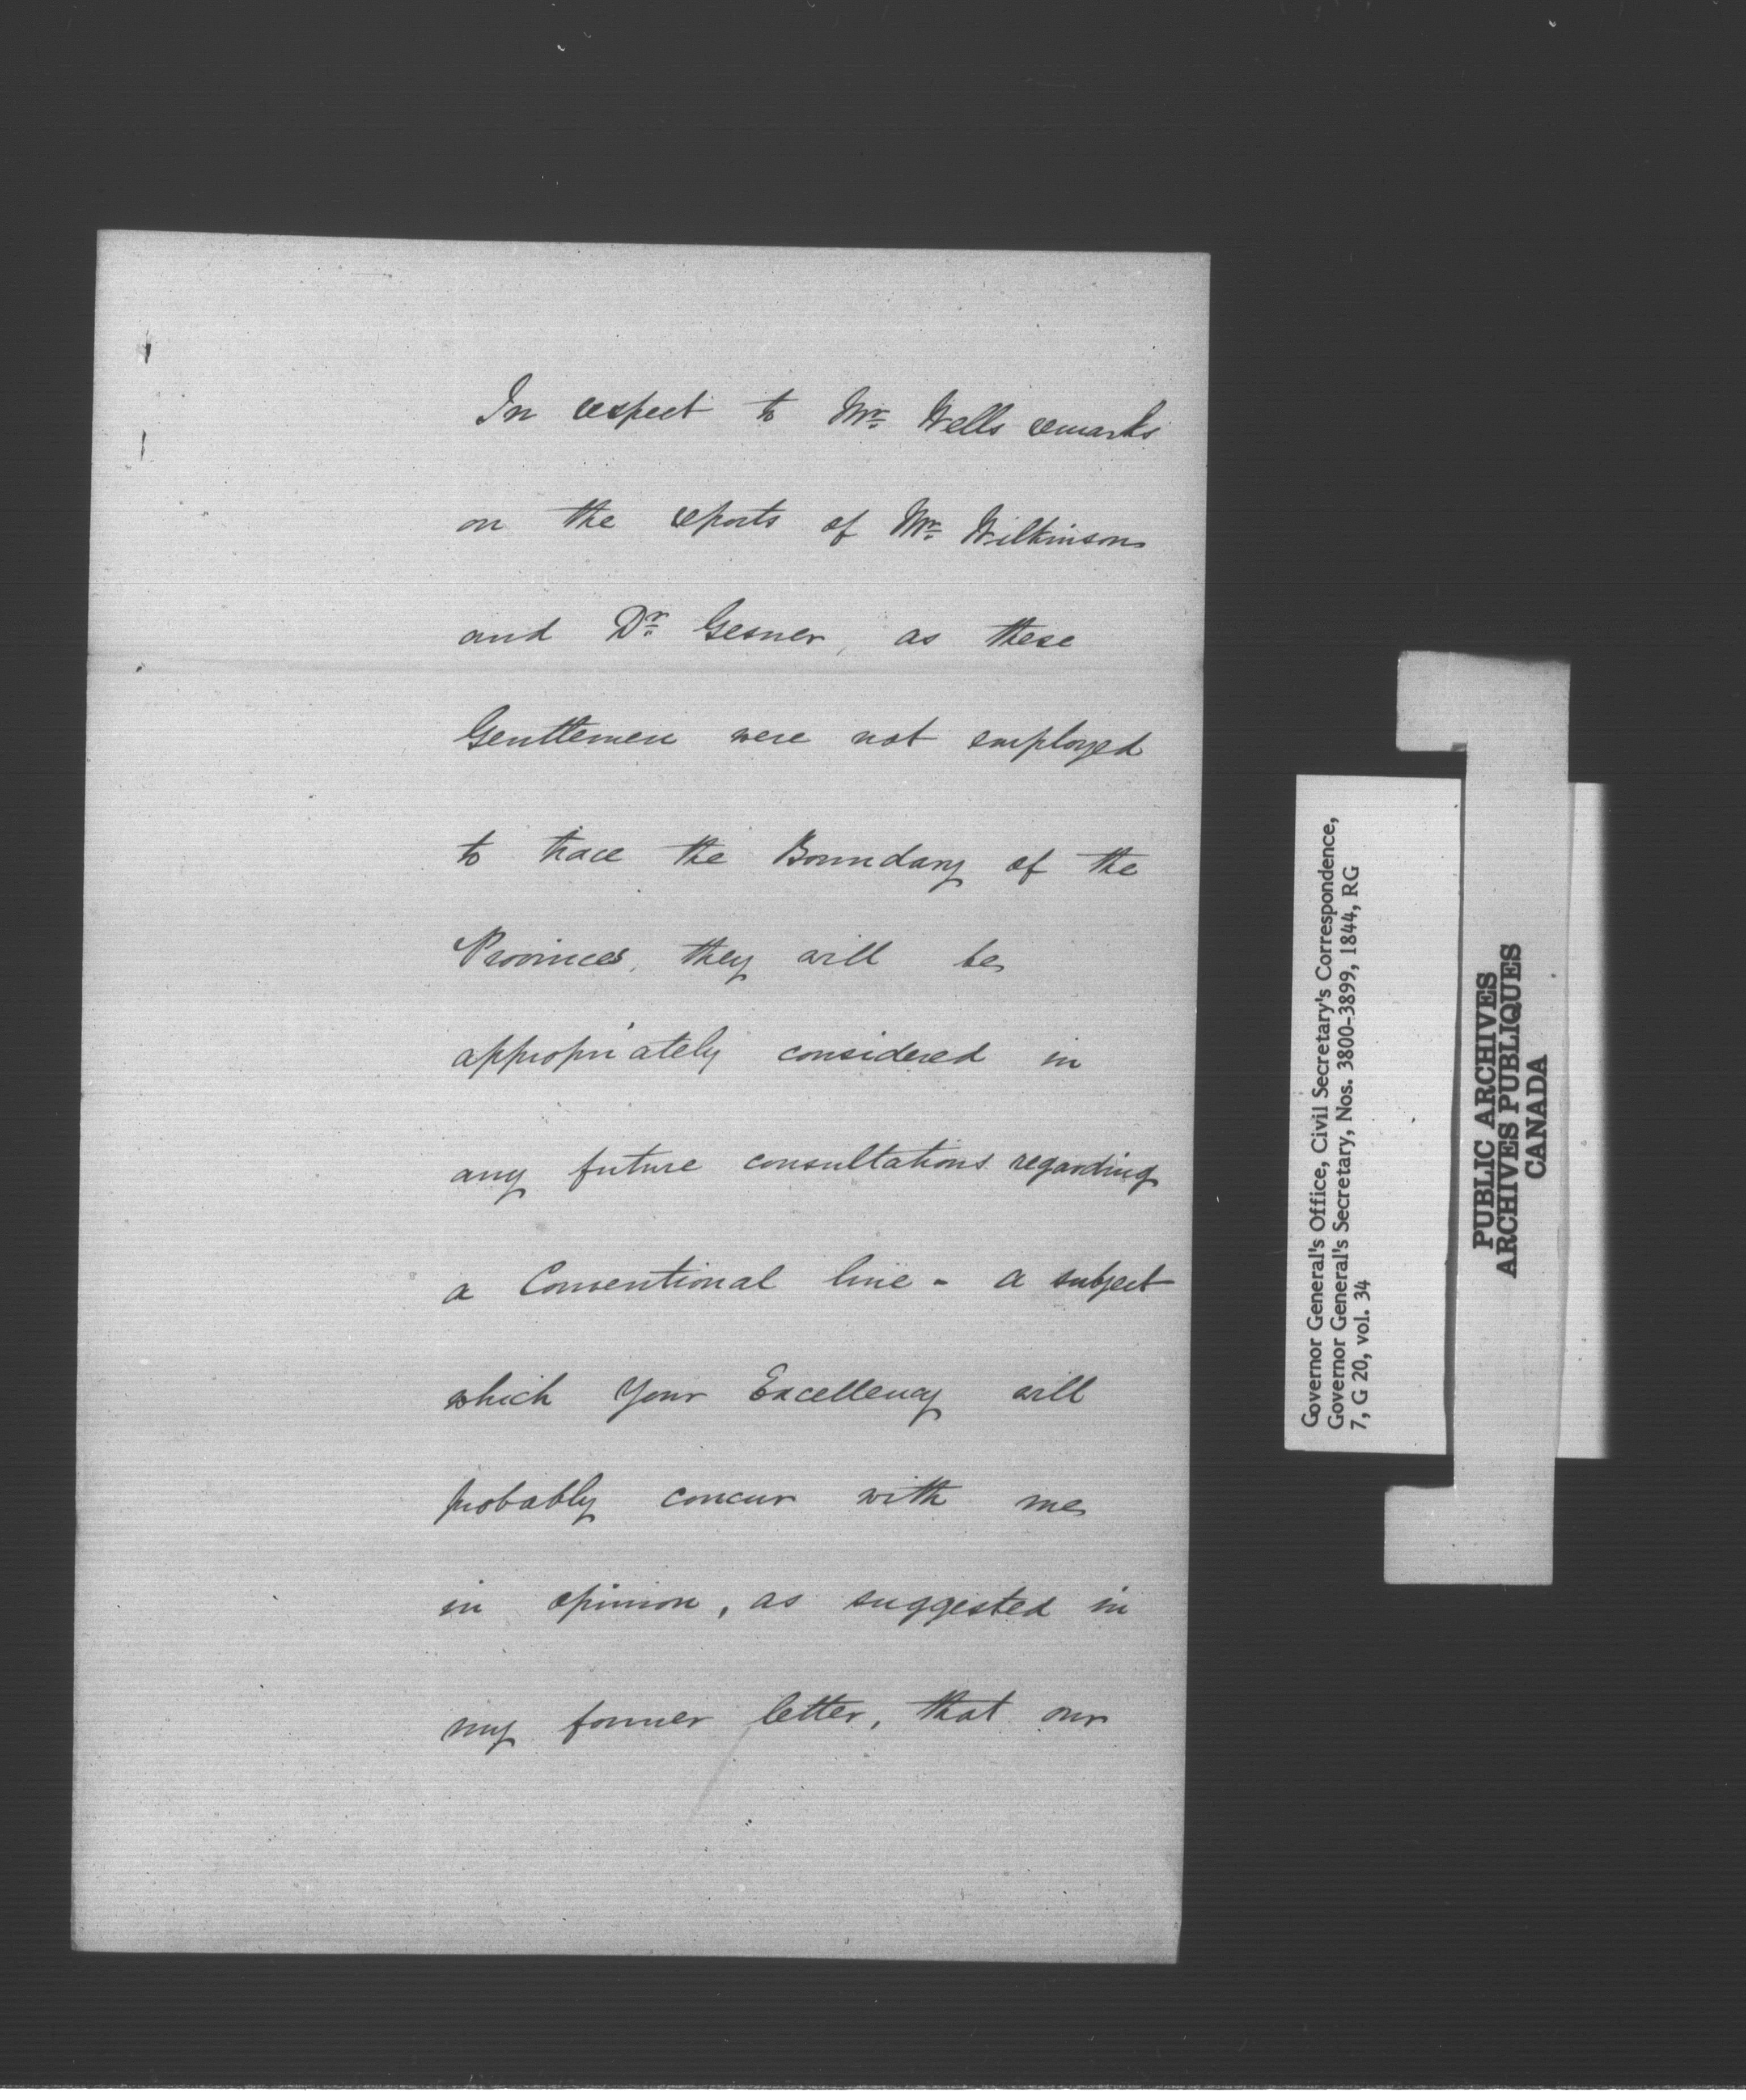 In respect to Mr. Wells remarks
on the reports of Mr. Wilkinson
and Dr. Gesner, as these
Gentlemen were not employed
to trace the Boundary of the
Provinces, they will be
appropriately considered in
any future consultations regarding
a Conventional line - a subject
which Your Excellency will
probably concur with me
in opinion, as suggested in
my former letter, that our
Governor General's Office, Civil Secretary's Correspondence,
Governor General's Secretary, Nos. 3800-3899, 1844, RG
7, G 20, vol. 34
PUBLIC ARCHIVES
ARCHIVES PUBLIQUES
CANADA